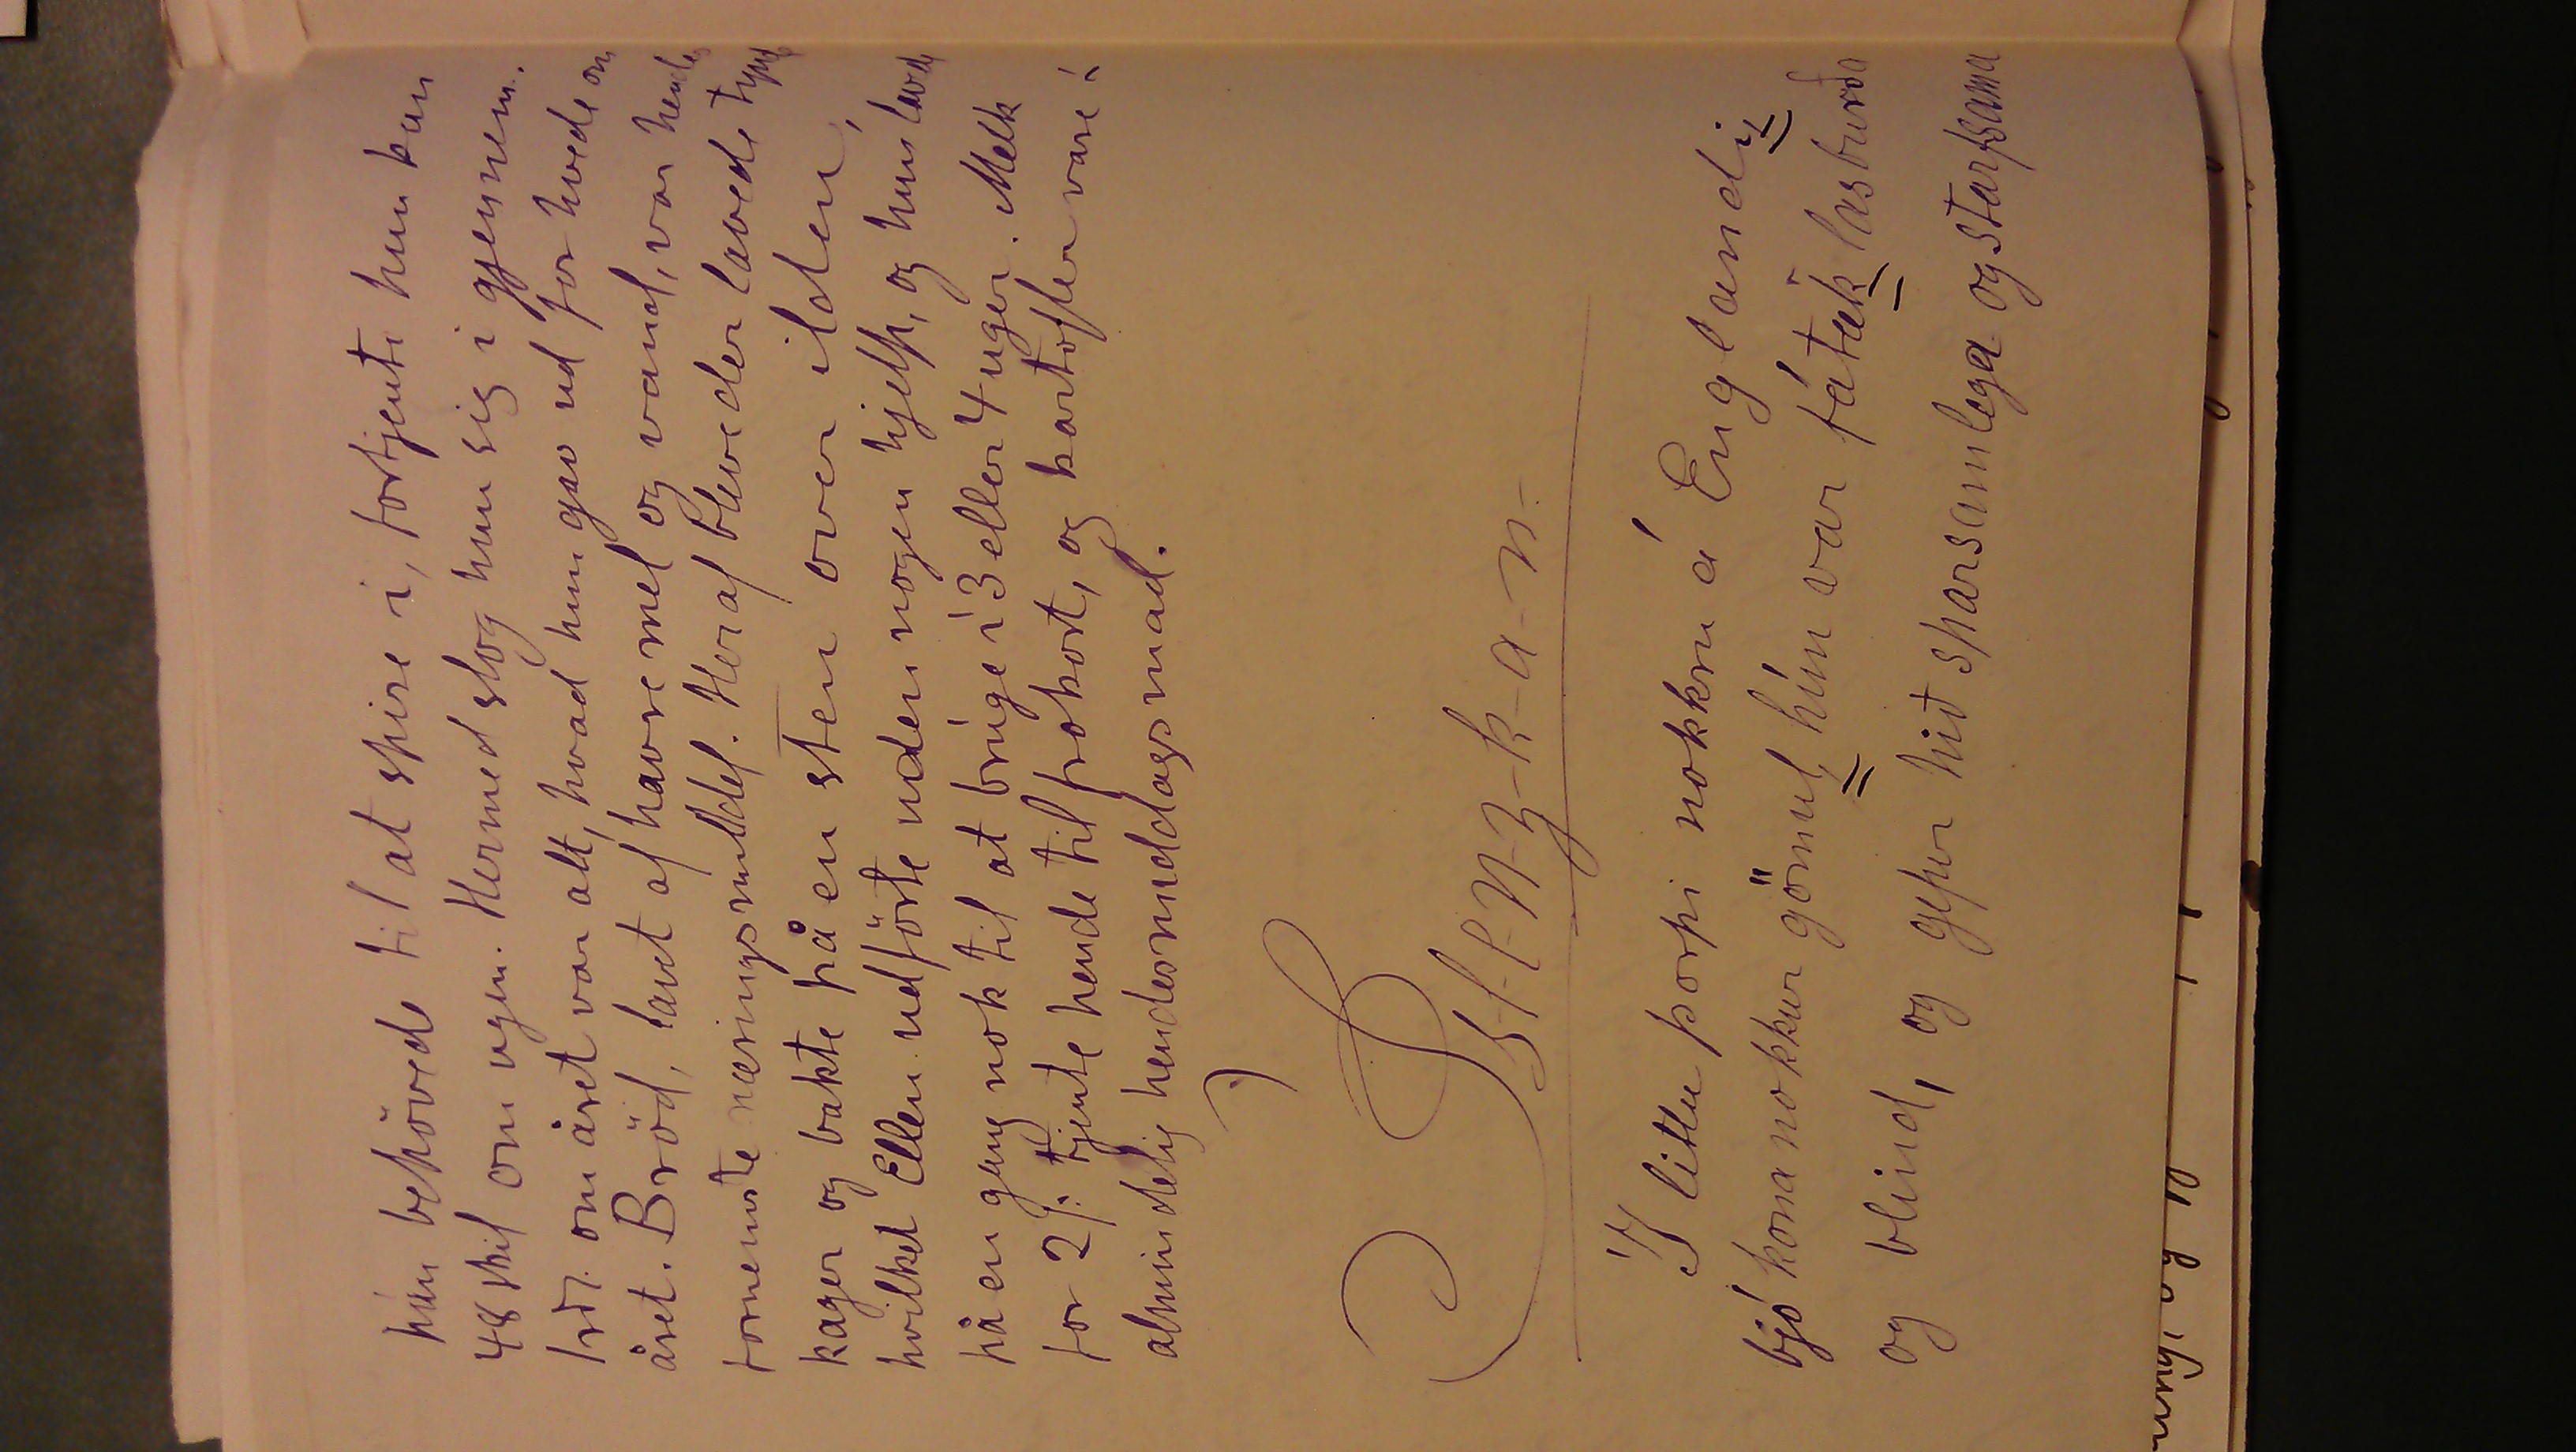 hún behövede til at spise i, fortjente hun kun
48 skil om ugen. Hermed slog hun sig i gjennem.
om året var alt, hvad hun gav ud for hvede om
året. Bröd, lavet af havremel og vand, var hendes
fornemste næringsmiddel. Heraf bleve der lavede tynde
kager og bakte på en sten over ilden,
hvilket Ellen udförte uden nogen hjelp, og hun lavede
på en gang nok til at brúge i 3 eller 4 uger. Melk
for 2 f. tjente hende til frókost, og kartofler vare i
almindelig hendes middagsmad.
Í litlu þorpi nokkru á Englandi,
bjó kona nokkur gömul, hún var fátæk lasburða
og blind, og gefur hið sparsamlega og starfsama